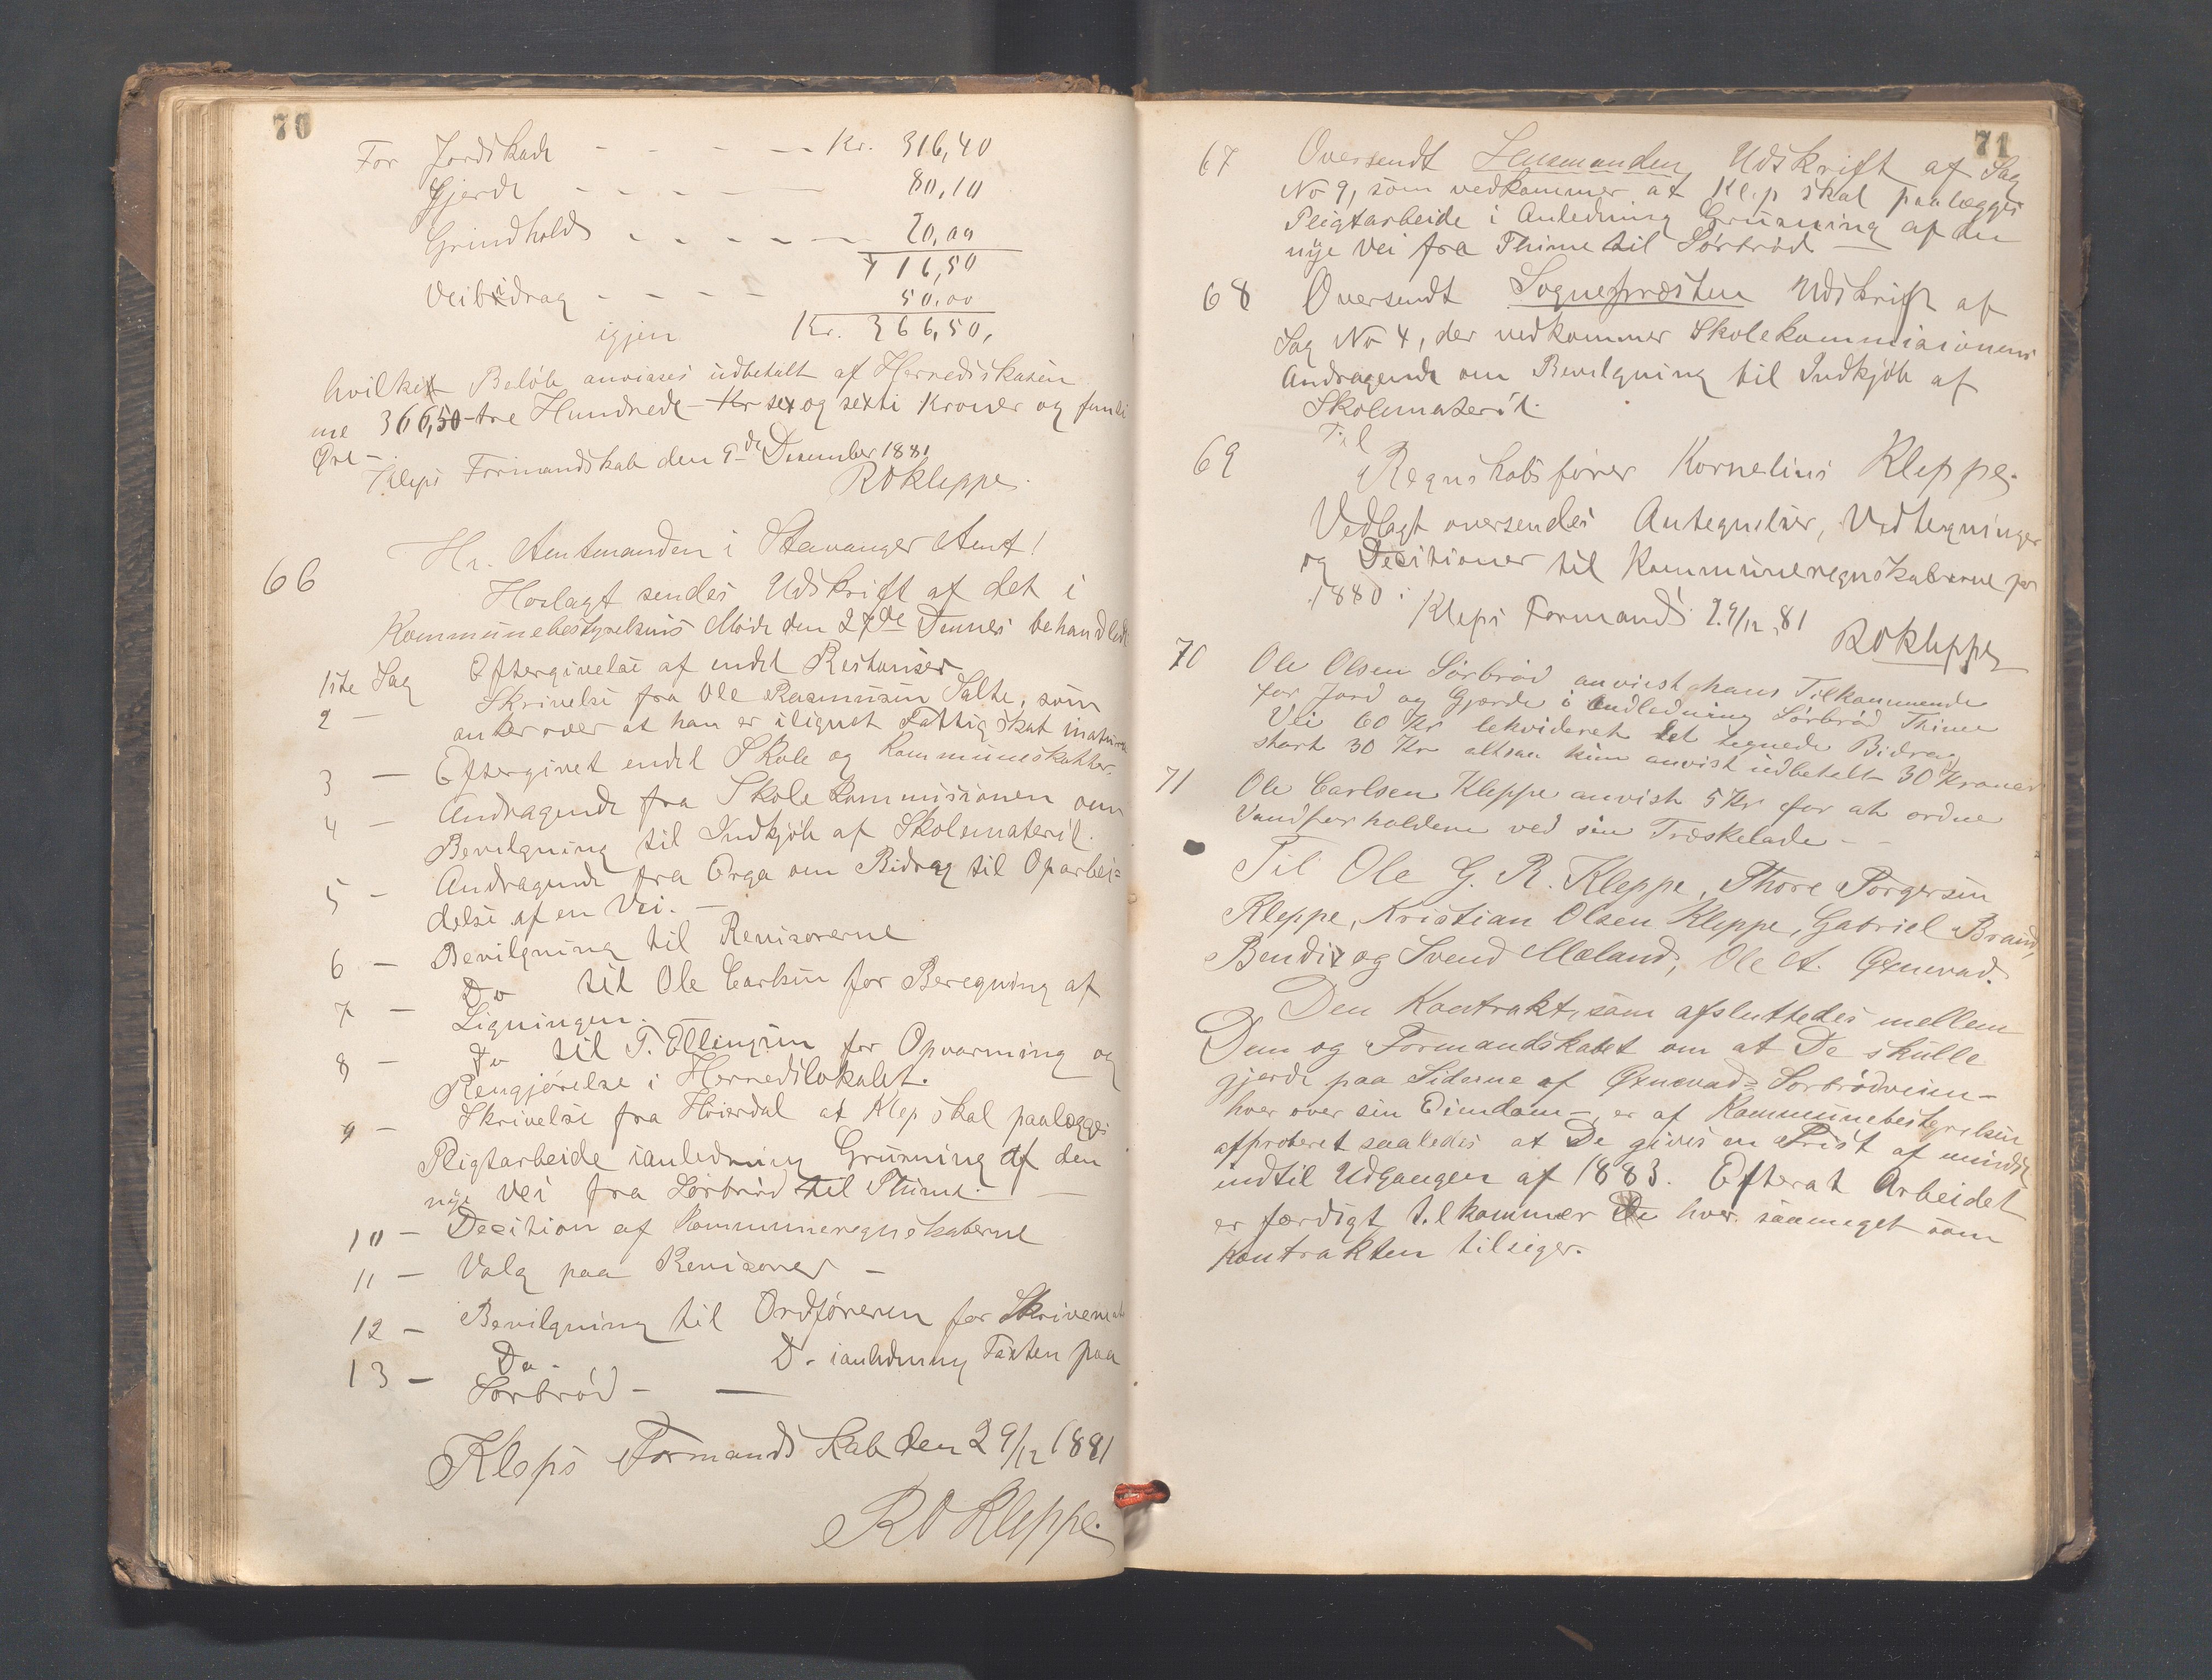 70
For Jordskade - - - - Kr. 316,40
Gjerde - - - - 80,10
Grindhold - - - - 20,00
416,50
Veibidrag - - - - 50,00
igjen Kr. 366,50,
hvilket Beløb anvises udbetalt af Herredskasen
366,50 - tre Hundrede Kr sex og sexti Kroner og femti
Øre -
Kleps Formandskab den 9de Desember 1881
ROKleppe.
66
Hr. Amtmanden i Stavanger Amt!
Hoslagt sendes Udskrift af det i
Kommunebestyrelsens Møde den 27de Dennes behandlede
1ste Sag Eftergivelse af endel Restanser
2 - Skrivelse fra Ole Rasmusen Salte, som
anker over at han er ilignet Fattigskat inatura
3 - Eftergivet endel Skole og Kommuneskatter.
4 - Andragende fra Skolekommisionen om
Bevilgning til Indkjøb af Skolemateriel.
5 - Andragende fra Orga om Bidrag til Oparbei=
delse af en Vei. -
6 - Bevilgning til Revisorerne
7 - Do til Ole Carlsen for Beregning af
Ligningen.
8 - Do til T. Ellingsen for Opvarming og
Rengjørelse i Herredslokalet.
9 - Skrivelse fra Høierdal at Klep skal paalægges
Pligtarbeide ianledning Grusning af den
nye Vei fra Sørbrød til Thime. -
10 - Decition af Kommuneregnskaberne
11 - Valg paa Revisorer -
12 - Bevilgning til Ordføreren for Skrivemat
13 - Do - Do ianledning Taxten paa
Sørbrød - -
Kleps Formandskab den 29/12 1881
ROKleppe.
71
67 Oversendt Lensmanden Udskrift af Sag
No 9, som vedkommer at Klep skal paalægges
Pligtarbeide i Anledning Grusning af den
nye Vei fra Thime til Sørbrød -
68 Oversendt Sognepræsten Udskrift af
Sag No 4, der vedkommer Skolekommisionens
Andragende om Bevilgning til Indkjøb af
Skolemateriel.
69
Til
Regnskabsfører Kornelius Kleppe.
Vedlagt oversendes Antegnelser, Vedtegninger
og Decitioner til Kommuneregnskaberne for
1880.
Kleps Formands. 29/12 81
ROKleppe
70 Ole Olsen Sørbrød anvist hans Tilkommende
for Jord og Gjærde i Andledning Sørbrød Thime
Vei 60 Kr lekvideret det tegnede Bidrag
stort 30 Kr altsaa kun anvist udbetalt 30 Kroner
71 Ole Carlsen Kleppe anvist 5 Kr for at ordne
Vandforholdene ved sin Træskelade - -
Til Ole G. R. Kleppe, Thore Torgersen
Kleppe, Kristian Olsen Kleppe, Gabriel Braud,
Bendix og Svend Mæland, Ole A. Øxnevad.
Den Kontrakt, som afsluttedes mellem
Dem og Formandskabet om at De skulle
gjerde paa Siderne af Øxnevad=Sørbrødveien -
hver over sin Eiendom -, er af Kommunebestyrelsen
afproberet saaledes at De gives en Frist af
indtil Udgangen af 1883. Efterat Arbeidet
er færdigt tilkommer De hver saameget som
Kontrakten tilsiger.